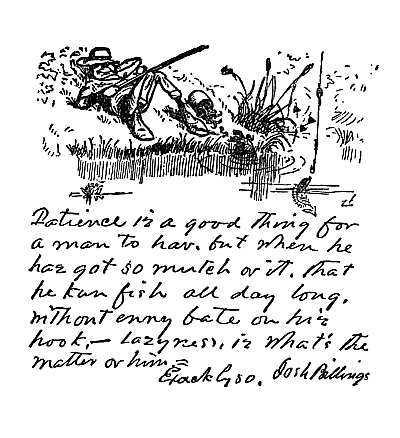 Patience iz a good thing for
a man to hav. but when he
haz got so mutch ov it. that
he kan fish all day long.
without enny bate on hiz
hook,— Lazyness, iz what's the
matter ov him,=
Exackly so. Josh Billings